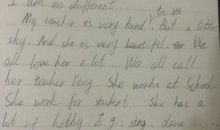 I am no different
to us
My teacher is very kind. But a little
shy. And she is very beautiful. We
all love her a lot. We all call
her teacher Yang. She works at School
She work for student. She has a
lot of hobby. E.g: sing, dance